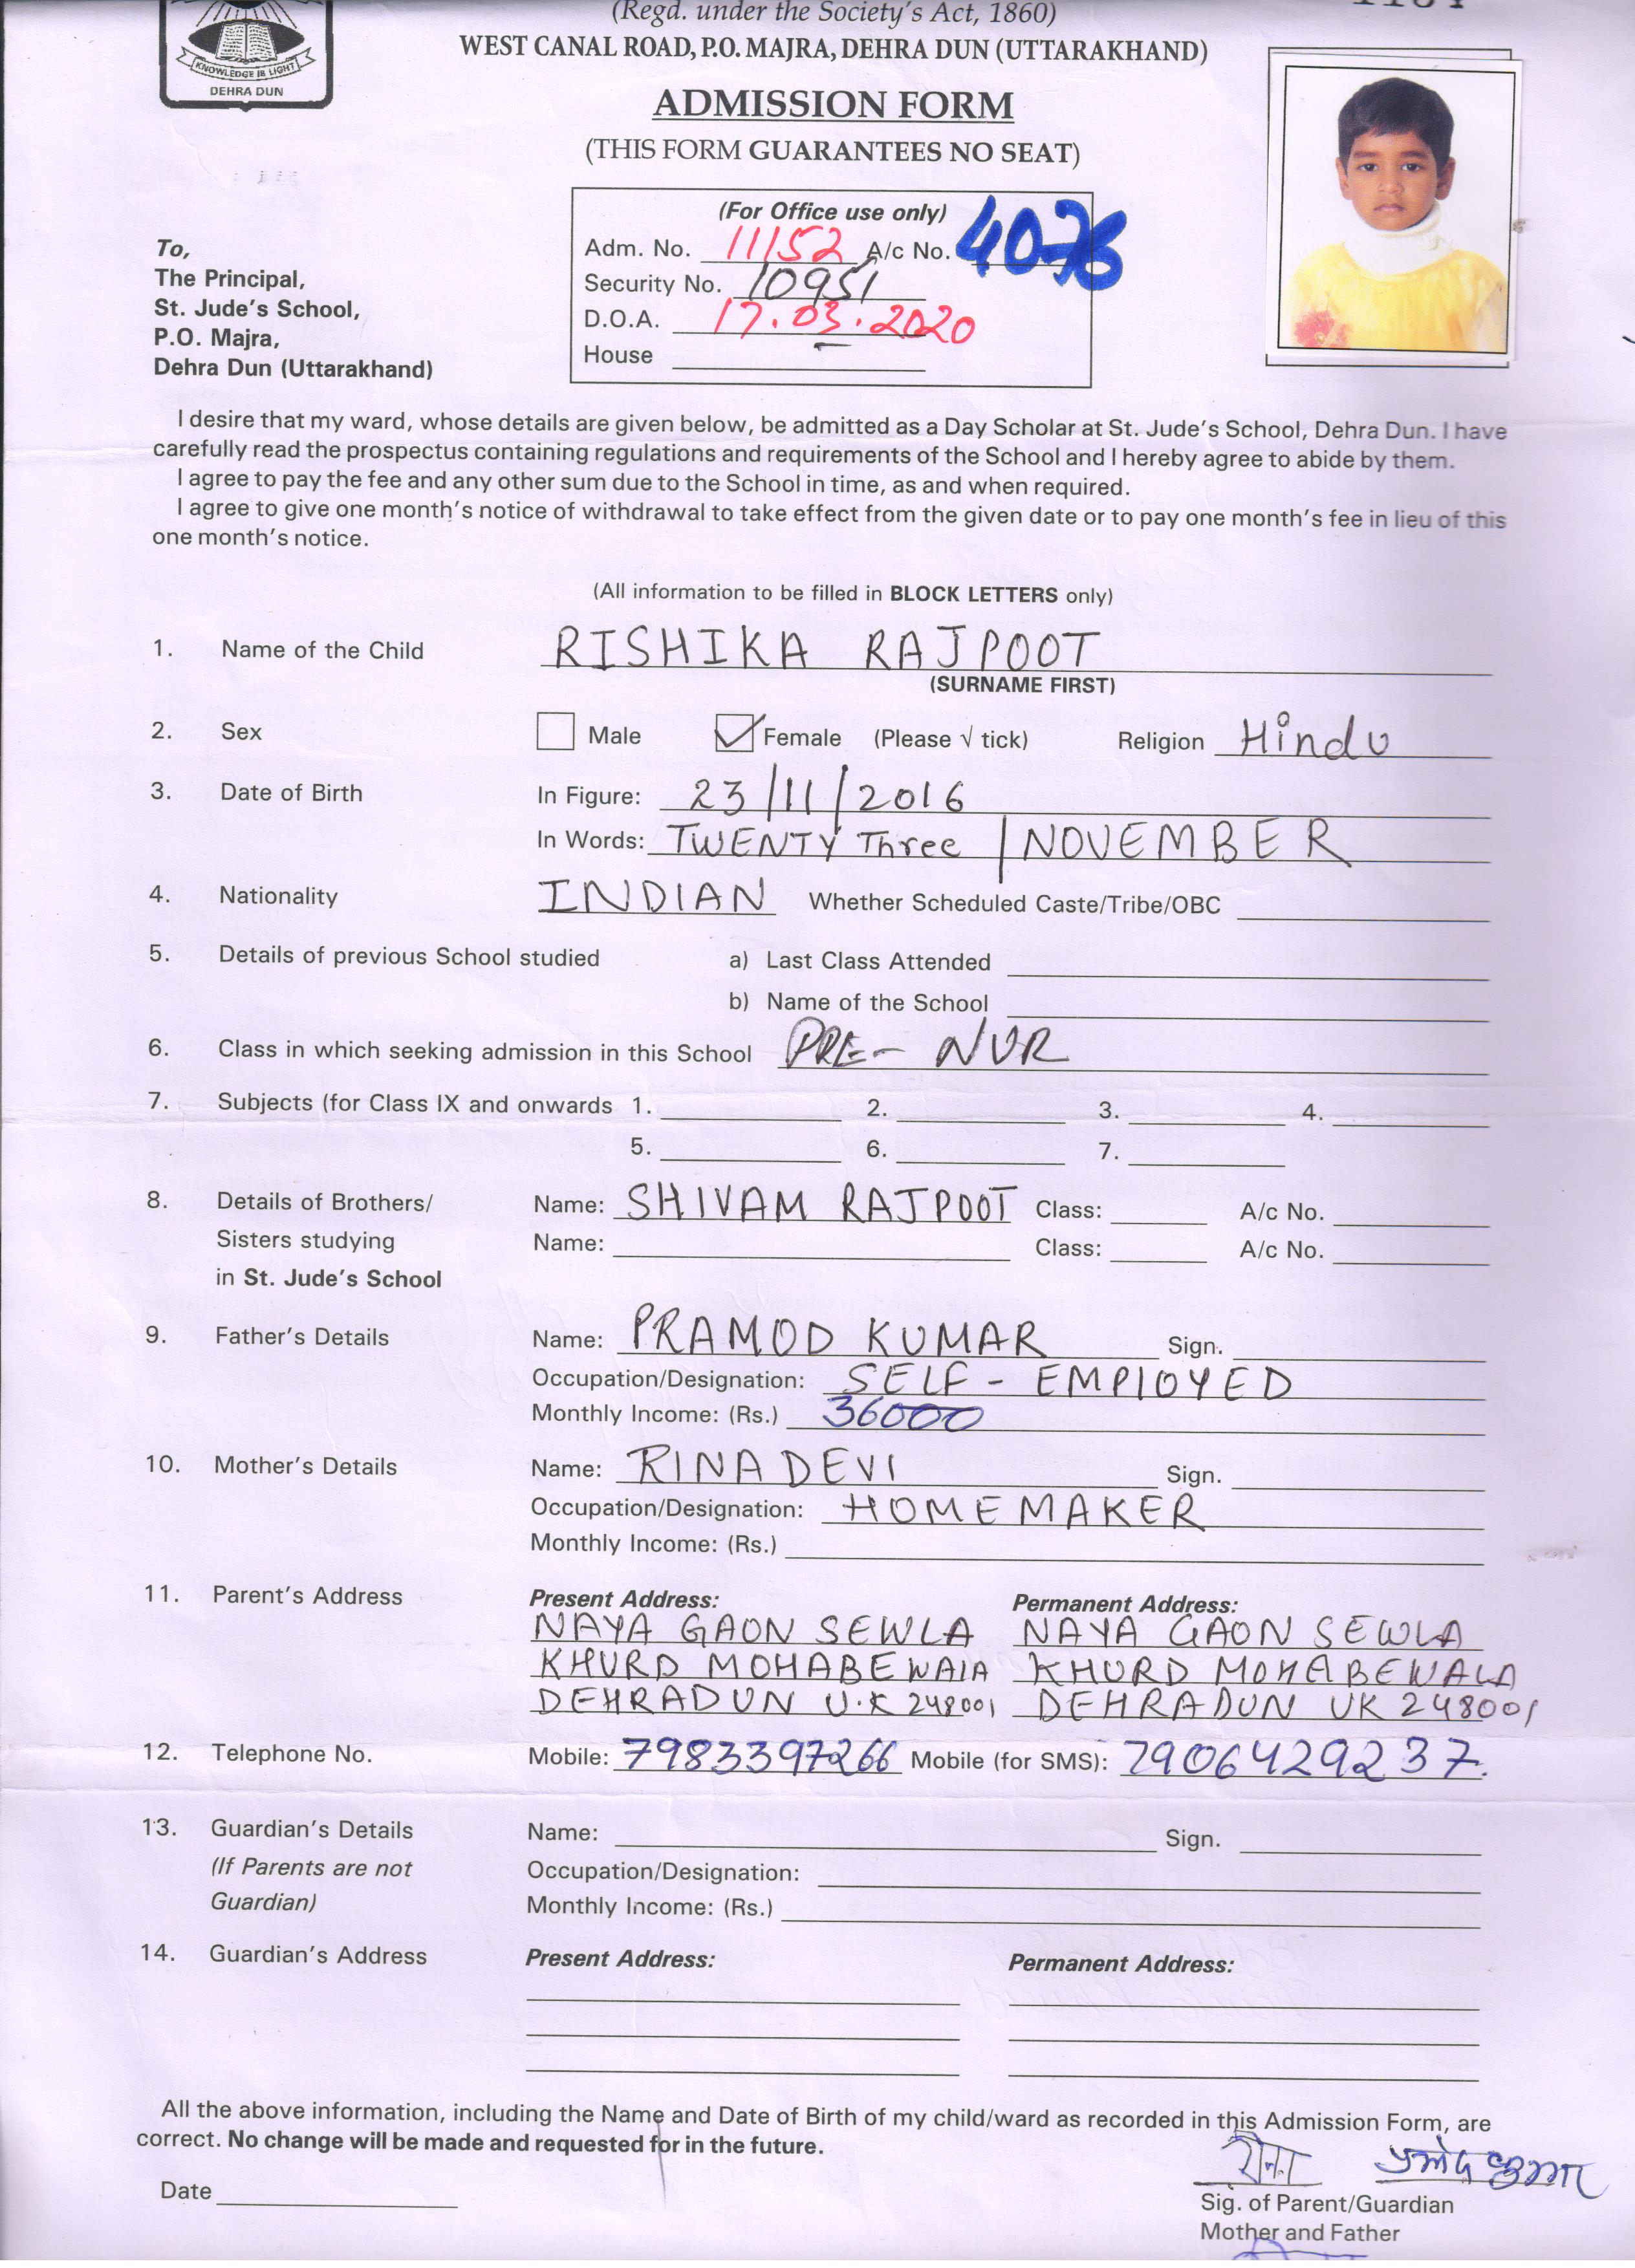 (Regd. under the Society's Act, 1860)
WEST CANAL ROAD, P.O. MAJRA, DEHRA DUN (UTTARAKHAND)
KNOWLEDGE IS LIGHT
DEHRA DUN
ADMISSION FORM
(THIS FORM GUARANTEES NO SEAT)
(For Office use only)
Adm. No. 11152 A/c No. 4076
Security No. 10951
D.O.A. 17.03.2020
House
To,
The Principal,
St. Jude's School,
P.O. Majra,
Dehra Dun (Uttarakhand)
I desire that my ward, whose details are given below, be admitted as a Day Scholar at St. Jude's School, Dehra Dun. I have
carefully read the prospectus containing regulations and requirements of the School and I hereby agree to abide by them.
I agree to pay the fee and any other sum due to the School in time, as and when required.
I agree to give one month's notice of withdrawal to take effect from the given date or to pay one month's fee in lieu of this
one month's notice.
(All information to be filled in BLOCK LETTERS only)
1. Name of the Child RISHIKA RAJPOOT
(SURNAME FIRST)
2. Sex Male Female (Please √ tick) Religion Hindu
3. Date of Birth In Figure: 23/11/2016
In Words: TWENTY Three / NOVEMBER
4. Nationality INDIAN Whether Scheduled Caste/Tribe/OBC
5. Details of previous School studied a) Last Class Attended
b) Name of the School
6. Class in which seeking admission in this School PRE- NUR
7. Subjects (for Class IX and onwards 1. 2. 3. 4.
5. 6. 7.
8. Details of Brothers/ Name: SHIVAM RAJPOOT Class: A/c No.
Sisters studying Name: Class: A/c No.
in St. Jude's School
9. Father's Details Name: PRAMOD KUMAR Sign.
Occupation/Designation: SELF - EMPlOYED
Monthly Income: (Rs.) 36000
10. Mother's Details Name: RINA DEVI Sign.
Occupation/Designation: HOMEMAKER
Monthly Income: (Rs.)
11. Parent's Address Present Address: Permanent Address:
NAYA GAON SEWLA NAYA GAON SEWLA
KHURD MOHABEWAlA KHURD MOHABEWALA
DEHRADUN U.K 248001 DEHRADUN UK 248001
12. Telephone No. Mobile: 7983397266 Mobile (for SMS): 7906429237.
13. Guardian's Details Name: Sign.
(If Parents are not Occupation/Designation:
Guardian) Monthly Income: (Rs.)
14. Guardian's Address Present Address: Permanent Address:
All the above information, including the Name and Date of Birth of my child/ward as recorded in this Admission Form, are
correct. No change will be made and requested for in the future.
Date
Sig. of Parent/Guardian
Mother and Father